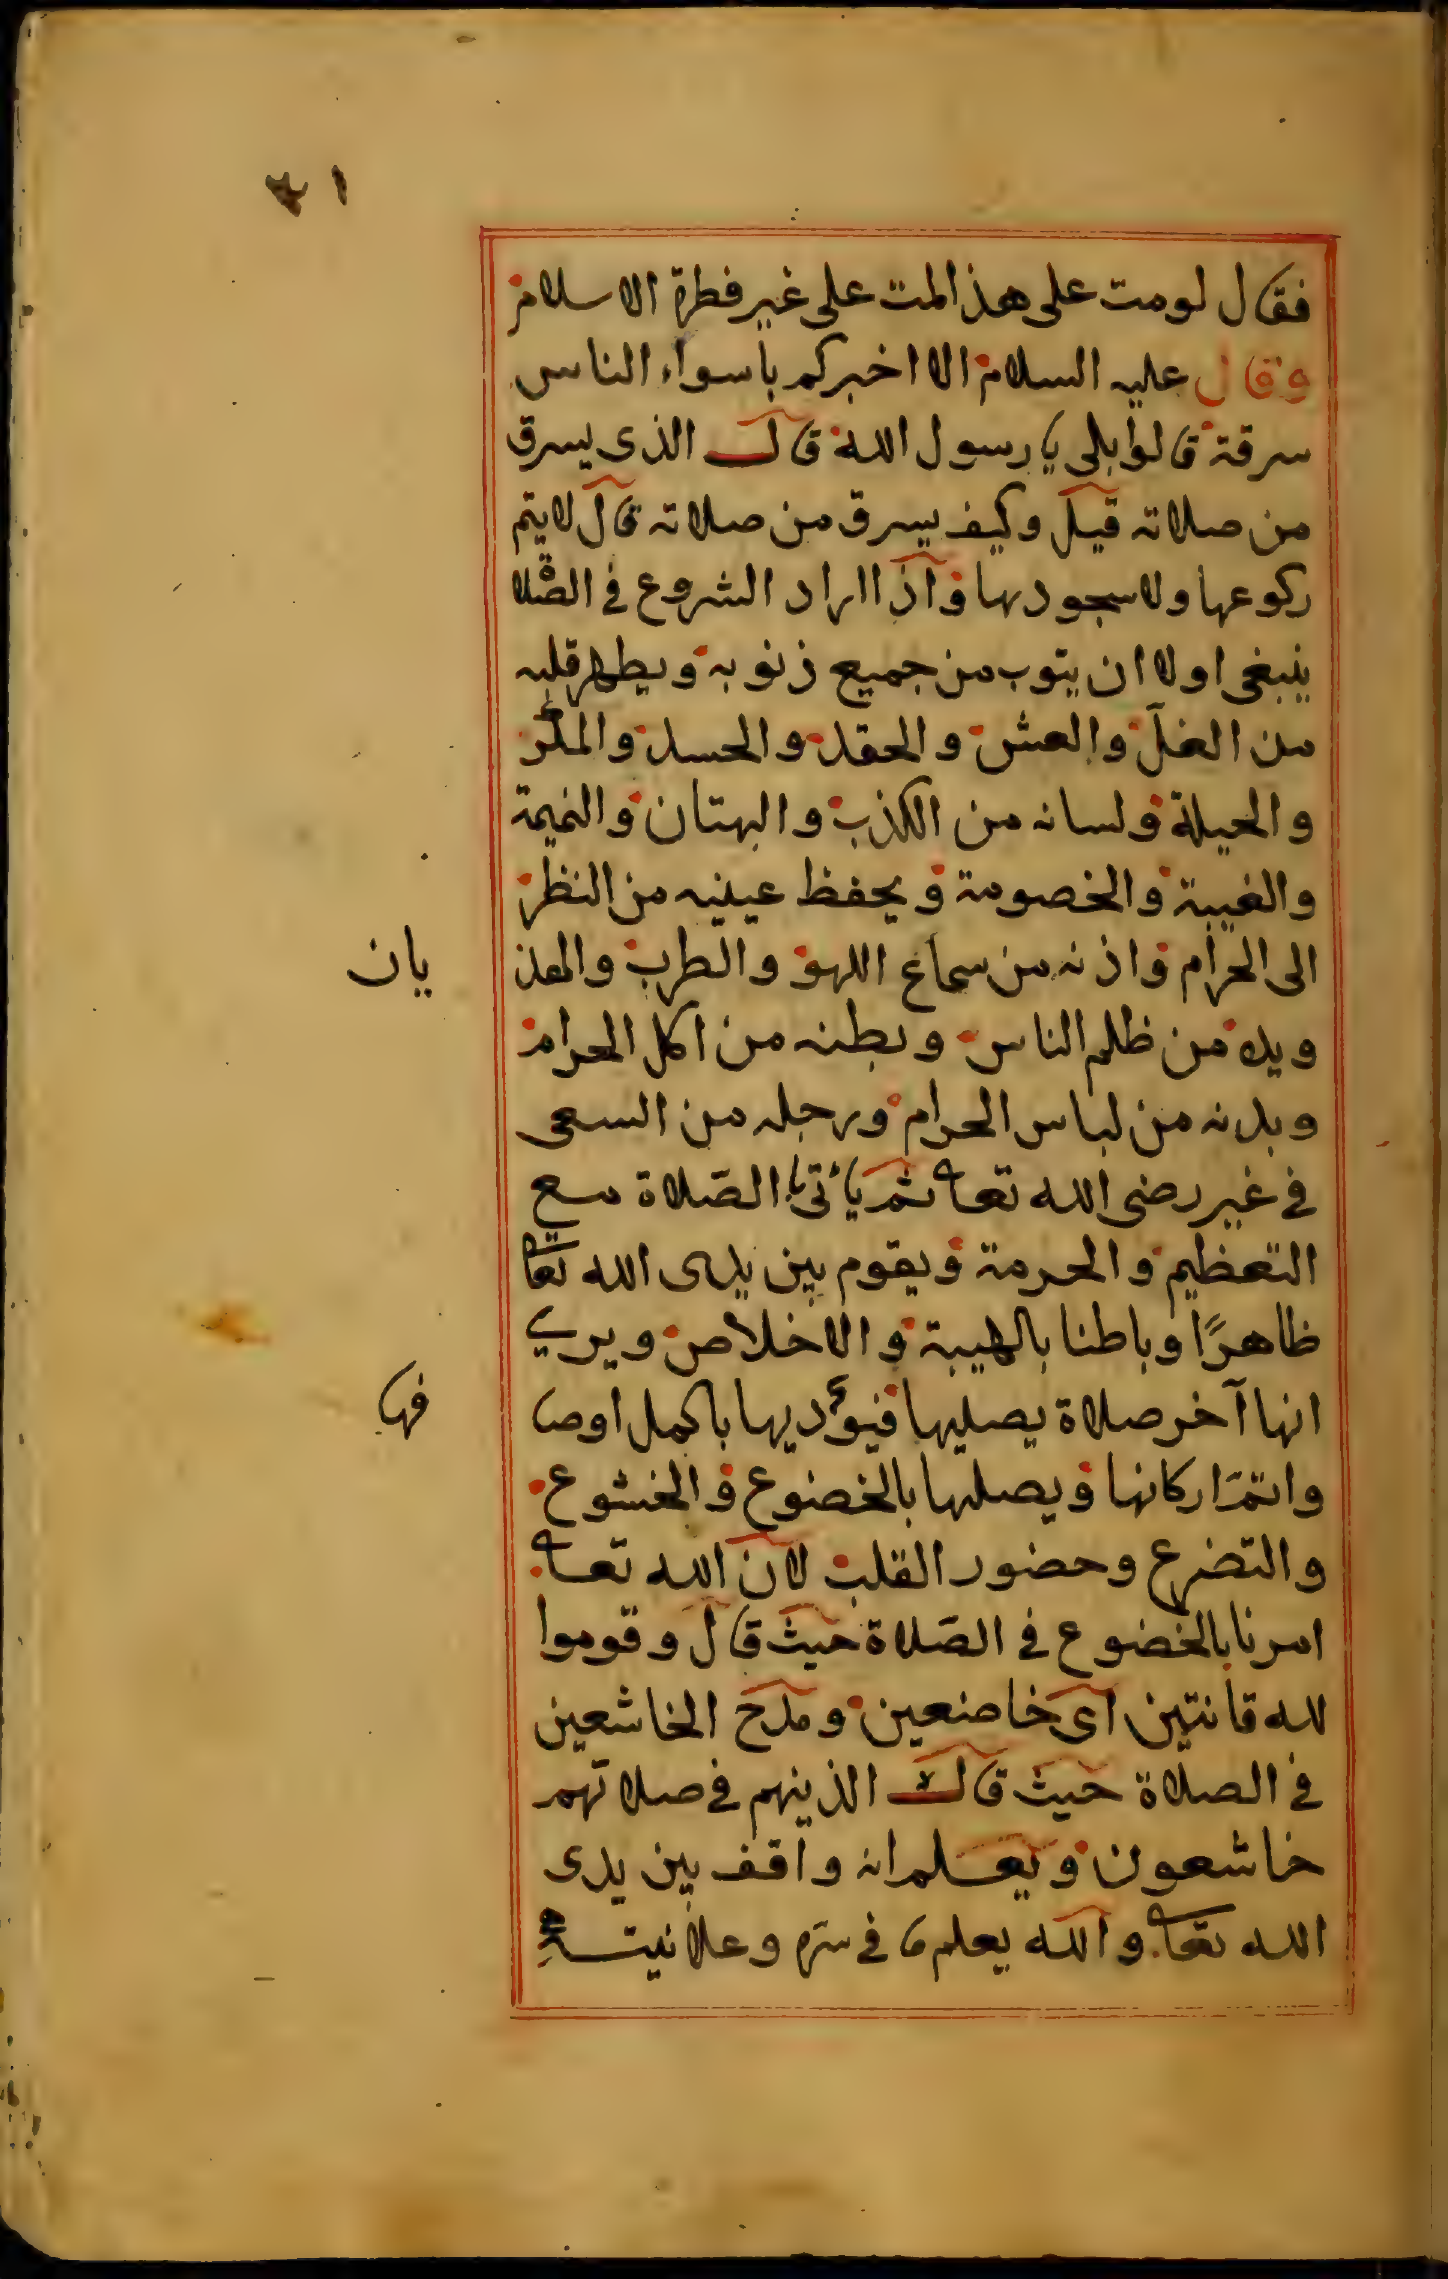 فقال لو مت على هذا لمت على غير فطرة الاسلام
وقال عليه السلام الا اخبركم باسواء الناس
سرقة قالوا بلى يا رسول الله قال الذى يسرق
من صلاته قيل وكيف يسرق من صلاته قال لا يتم
ركوعها ولا سجودها واذا اراد الشروع فى الصلاة
ينبغى اولا ان يتوب من جميع ذنوبه ويطهر قلبه
من الغل والغش والحقد والحسد والمكر
والحيلة ولسانه من الكذب والبهتان والنميمة
والغيبة والخصومة ويحفظ عينيه من النظر
الى الحرام واذنه من سماع اللهو والطرب والهذ
يان
ويده من ظلم الناس وبطنه من اكل الحرام
وبدنه من لباس الحرام ورجله من السعى
فى غير رضى الله تعا ثم يأتى با الصلاة مع
التعظيم والحرمة ويقوم بين يدى الله تعا
ظاهرًا وباطنا بالهيبة والاخلاص ويرى
انها آخر صلاة يصليها فيؤديها باكمل اوصا
فها
واتمّ اركانها ويصليها بالخضوع والخشوع
والتضرع وحضور القلب لان الله تعا
امرنا بالخضوع فى الصّلاة حيث قال وقوموا
لله قانتين اى خاضعين ومدح الخاشعين
فى الصلاة حيث قال الذينهم فى صلاتهم
خاشعون ويعلم انه واقف بين يدى
الله تعا والله يعلم ما فى سرّه وعلانيته